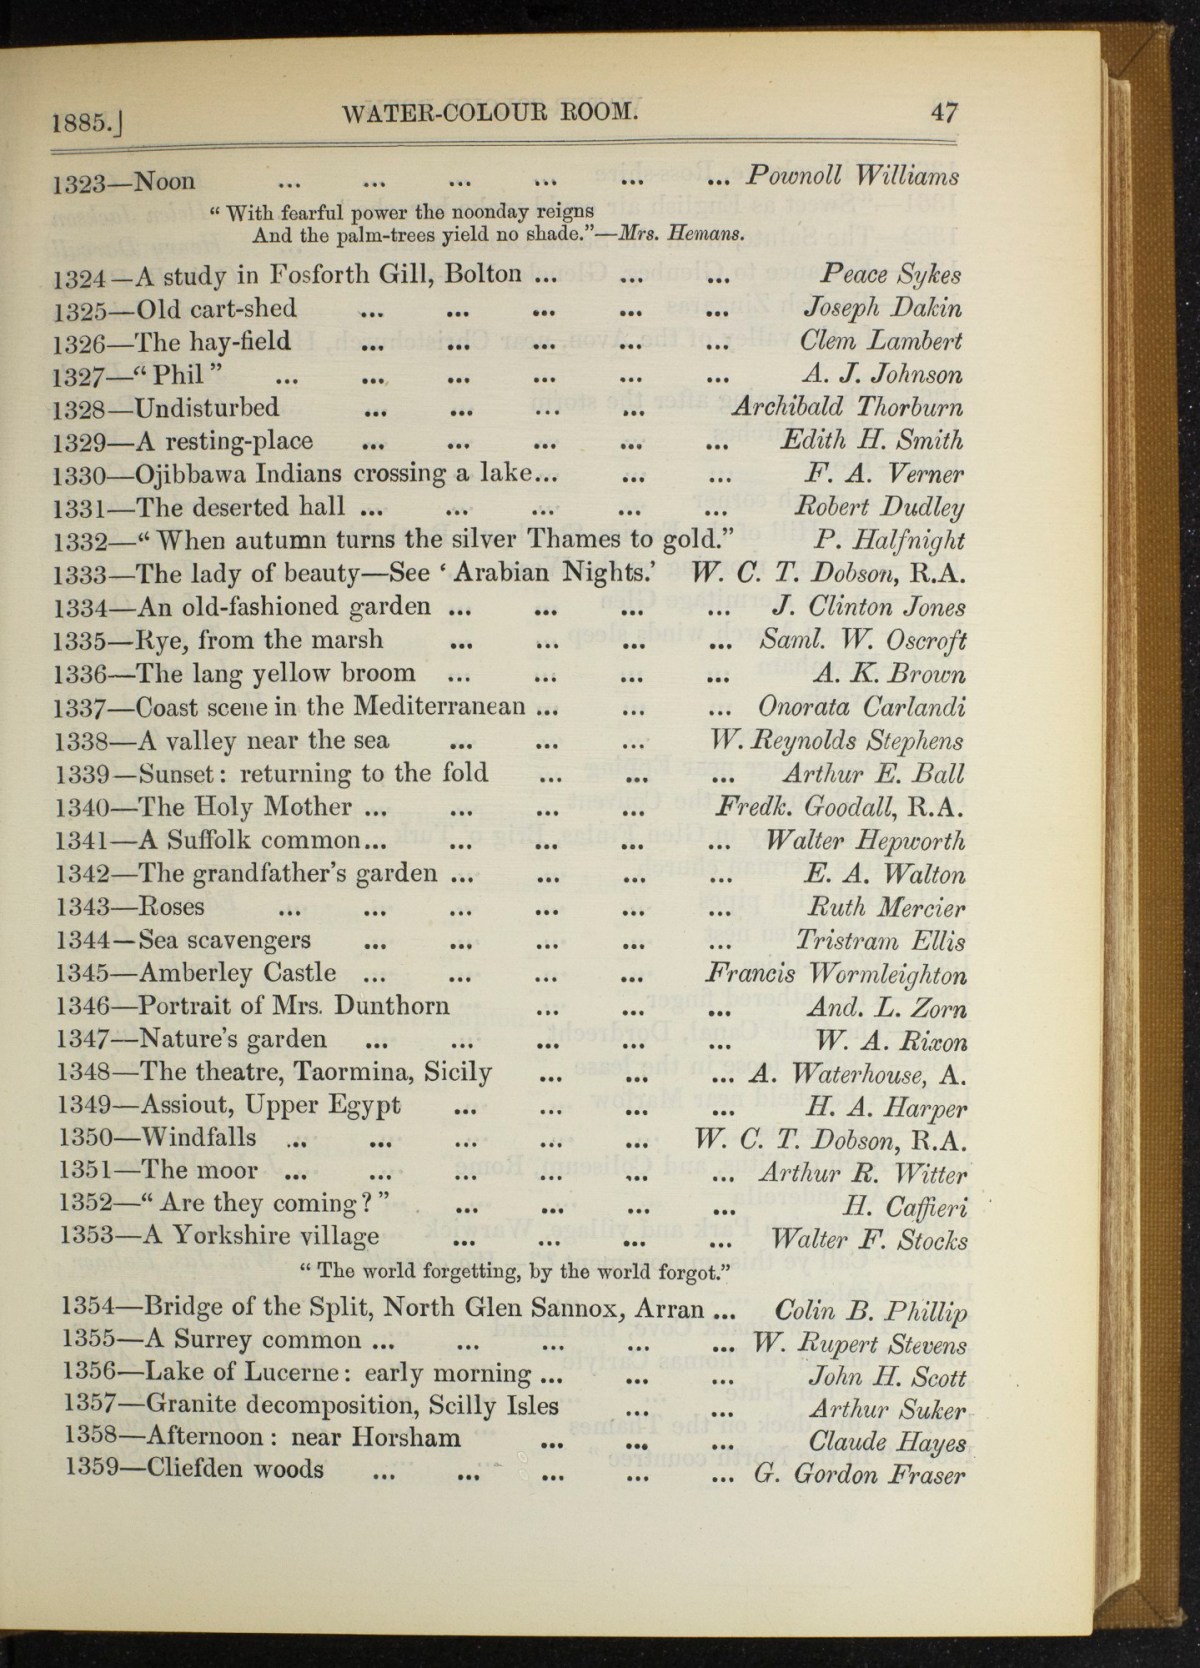 1885.] WATER-COLOUR ROOM. 47
1323—Noon ... ... ... ... ... ... Pownoll Williams
“ With fearful power the noonday reigns
And the palm-trees yield no shade.”—Mrs. Hemans.
1324—A study in Fosforth Gill, Bolton ... ... ... Peace Sykes
1325—Old cart-shed ... ... ... ... ... Joseph Dakin
1326—The hay-field ... ... ... ... ... Clem Lambert
1327—“ Phil ” ... ... ... ... ... ... A. J. Johnson
1328—Undisturbed ... ... ... ... Archibald Thorburn
1329—A resting-place ... ... ... ... ... Edith H. Smith
1330—Ojibbawa Indians crossing a lake... ... ... F. A. Verner
1331—The deserted hall ... ... ... ... ... Robert Dudley
1332—“ When autumn turns the silver Thames to gold.” P. Halfnight
1333—The lady of beauty—See ‘ Arabian Nights.’ W. C. T. Dobson, R.A.
1334—An old-fashioned garden ... ... ... ... J. Clinton Jones
1335—Rye, from the marsh ... ... ... ... Saml. W. Oscroft
1336—The lang yellow broom ... ... ... ... A. K. Brown
1337—Coast scene in the Mediterranean ... ... ... Onorata Carlandi
1338—A valley near the sea ... ... ... W. Reynolds Stephens
1339—Sunset : returning to the fold ... ... ... Arthur E. Ball
1340—The Holy Mother ... ... ... ... Fredk. Goodall, R.A.
1341—A Suffolk common... ... ... ... ... Walter Hepworth
1342—The grandfather’s garden ... ... ... ... E. A. Walton
1343—Roses ... ... ... ... ... ... Ruth Mercier
1344—Sea scavengers ... ... ... ... ... Tristram Ellis
1345—Amberley Castle ... ... ... ... Francis Wormleighton
1346—Portrait of Mrs. Dunthorn ... ... ... And. L. Zorn
1347—Nature’s garden ... ... ... ... ... W. A. Rixon
1348—The theatre, Taormina, Sicily ... ... ... A. Waterhouse, A.
1349—Assiout, Upper Egypt ... ... ... ... H. A. Harper
1350—Windfalls ... ... ... ... ... W. C. T. Dobson, R.A.
1351—The moor ... ... ... ... ... ... Arthur R. Witter
1352—“ Are they coming ? ” ... ... ... ... H. Caffieri
1353—A Yorkshire village ... ... ... ... Walter F. Stocks
“ The world forgetting, by the world forgot.”
1354—Bridge of the Split, North Glen Sannox, Arran ... Colin B. Phillip
1355—A Surrey common ... ... ... ... ... W. Rupert Stevens
1356—Lake of Lucerne : early morning ... ... ... John H. Scott
1357—Granite decomposition, Scilly Isles ... ... Arthur Suker
1358—Afternoon : near Horsham ... ... ... Claude Hayes
1359—Cliefden woods ... ... ... ... ... G. Gordon Fraser